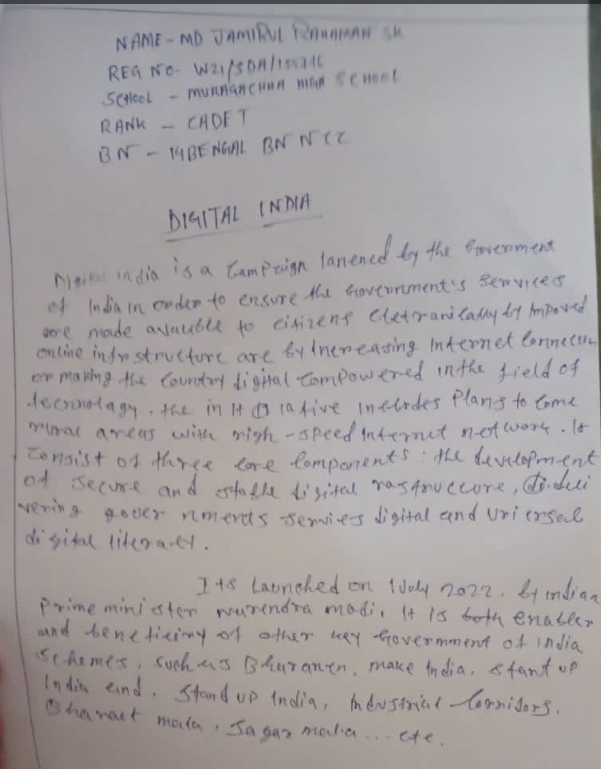 NAME - MD JAMIRUL RAHAMAN SK
REG NO - W21/SDA/
SCHOOL - MURAGACHHA HIGH SCHOOL
RANK - CADET
BN - 14 BENGAL BN NCC
DIGITAL INDIA
Digital india is a Campaign lanened by the Government
of India in order to ensure the Government's Services
are made avaliable to citizens by Impoved
online infrostructure are by Increasing Internet Connection
or making the Country digital Compowered in the field of
tecnnology. the includes Plans to Come
rural areas with high-speed Internet network. It
Consist of three core Components: the development
of secure and stable digital rastruccure, deli
vering governments servies digital and
digital literacy.
Its Launched on 1 July 2022. by indian
Prime minister narendra modi, It is both enabler
and of other key Government of india
Schemes, such as make India, start up
India and, stand up India, Industrial
Bharat mala, Sagar mala ... ete.